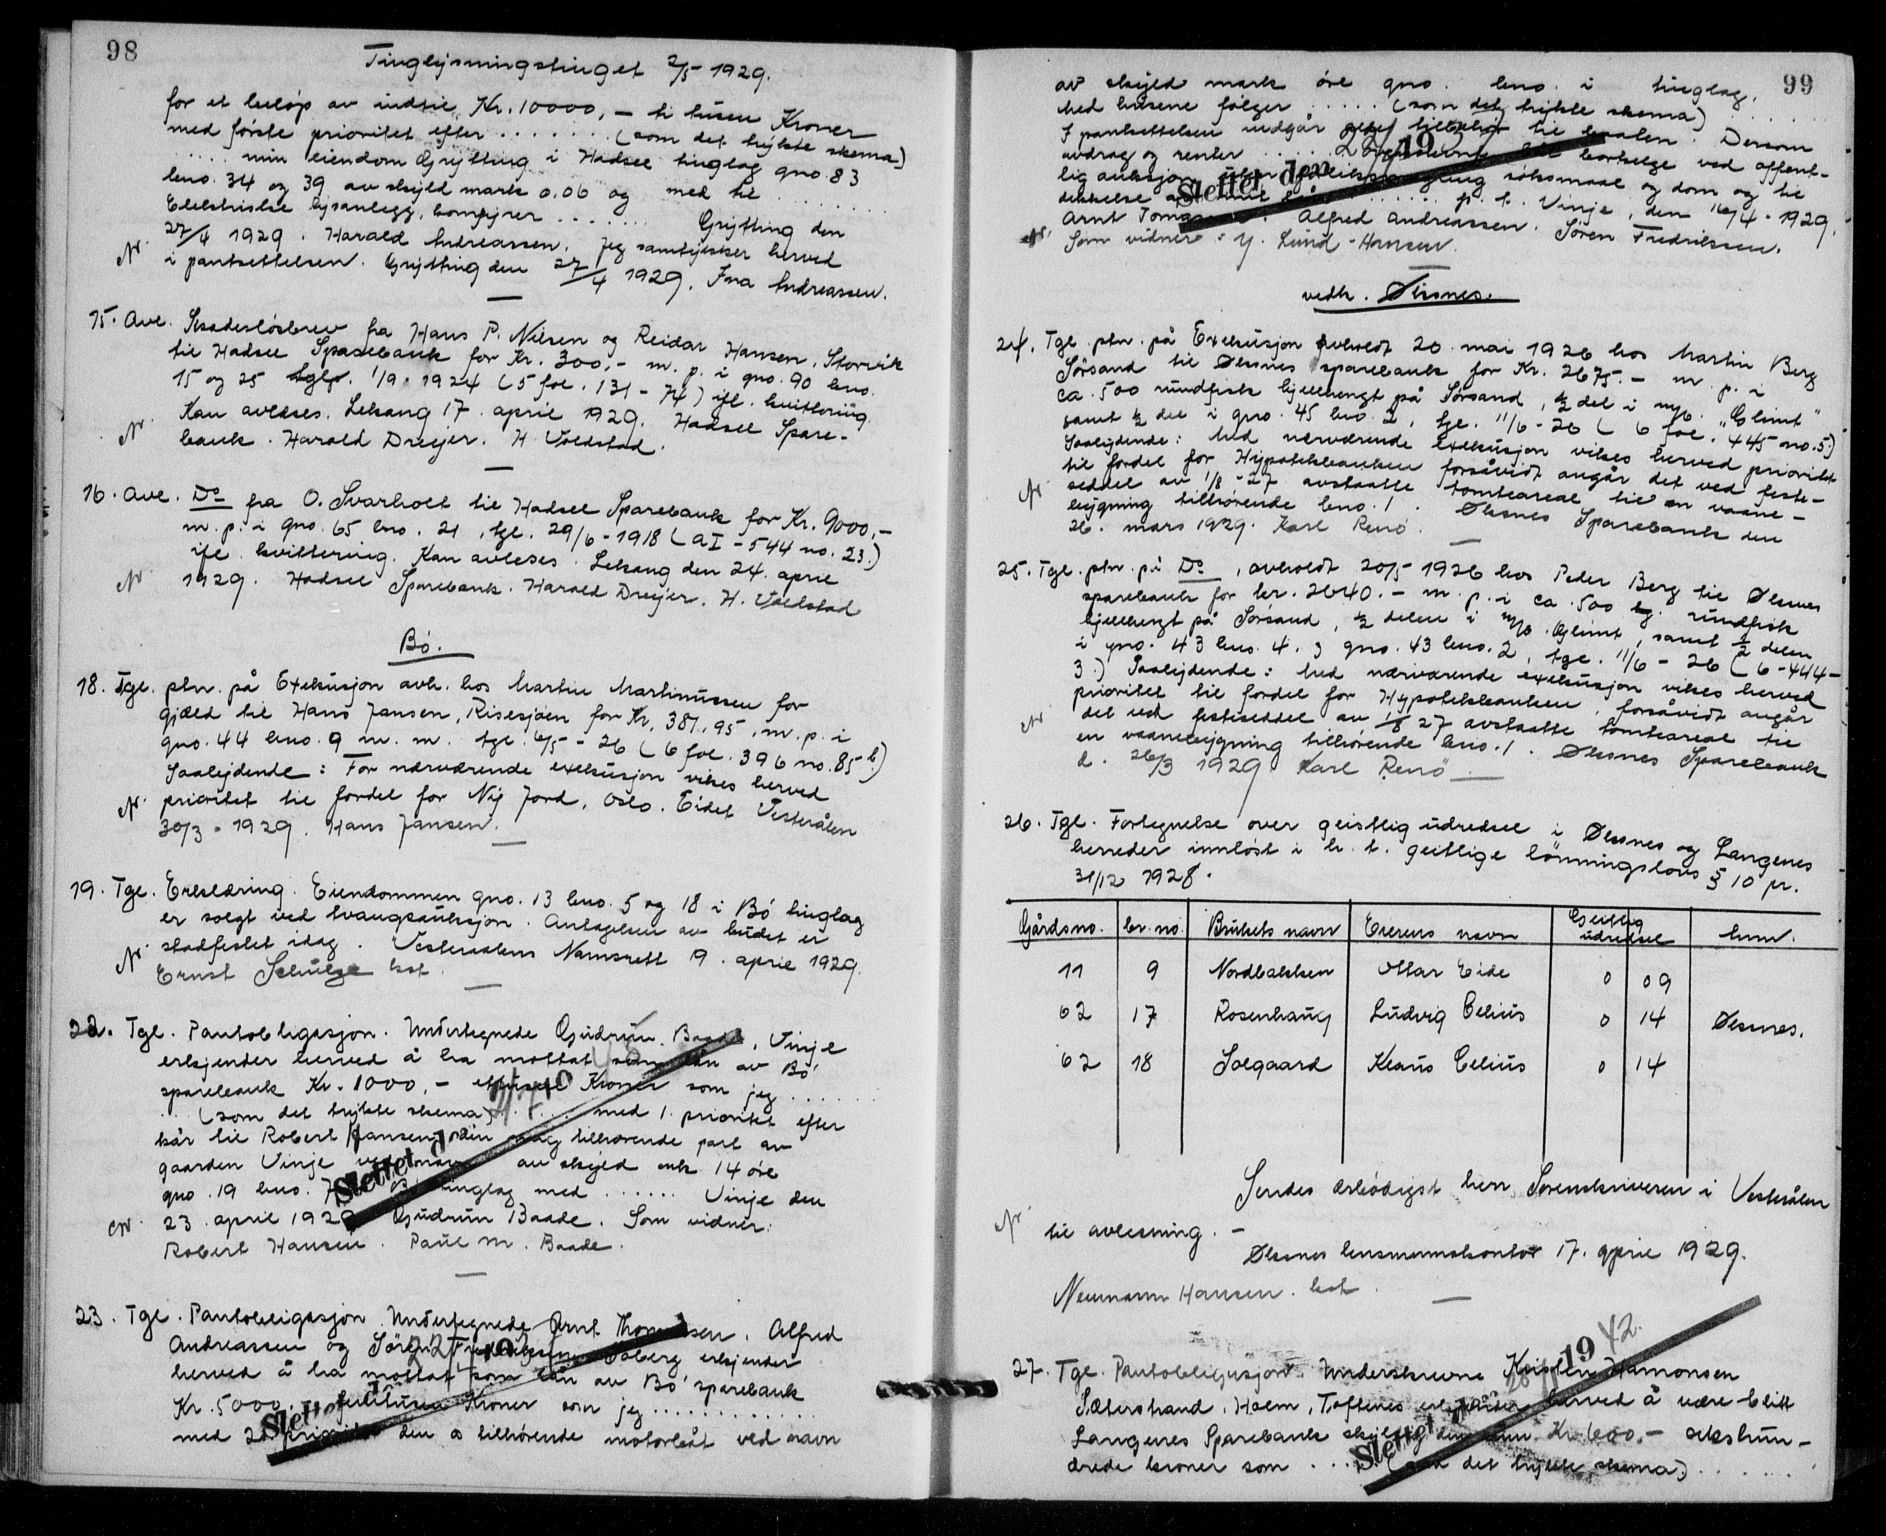 98
Tinglysningstinget 2/5-1929.
for et beløp av indtil Kr. 10000,- ti tusen Kroner
med første prioritet efter ....... (som det trykte skema)
.... min eiendom Grytting i Hadsel tinglag gno. 83
bno. 34 og 39 av skyld mark 0.06 og med til ........
Elektriske lysanlegg, komfyrer ....... Grytting den
27/4 1929. Harald Andreassen. Jeg samtykker herved
i pantsettelsen. Grytting den 27/4 1929. Ina Andreassen.
15. Avl. Skadesløsbrev fra Hans P. Nilsen og Reidar Hansen, Storvik
til Hadsel Sparebank for Kr. 300,- m. p. i gno. 90 bno.
15 og 25 tgl. 1/9 1924 (5 fol. 131-74) ifl. kvittering.
Kan avleses. Leksang 17. april 1929. Hadsel Spare-
bank. Harald Dreyer. H. Voldstad.
16. Avl. Do fra O. Svarholt til Hadsel Sparebank for Kr. 9000,-
m. p. i gno. 65 bno. 21, tgl. 29/6-1918 (a I-544 no. 23.)
ifl. kvittering. Kan avleses. Leksang den 24. april
1929. Hadsel Sparebank. Harald Dreyer. H. Voldstad
Bö.
18. Tgl. ptn. på Exekusjon avh. hos Martin Martinussen for
gjæld til Hans Jansen, Risesjøen for Kr. 381,95, m. p. i
gno. 44 bno. 9 m. m. tgl. 6/5-26 (6 fol. 396 no. 85 b.)
Saalydende: For nærværende exekusjon vikes herved
prioritet til fordel for Ny Jord, Oslo. Eidet Vesterålen
30/3-1929. Hans Jansen.
19. Tgl. Erklæring. Eiendommen gno. 13 bno. 5 og 18 i Bö tinglag
er solgt ved tvangsauksjon. Antagelsen av budet er
stadfestet idag. Vesteraalens Namsrett 9. april 1929.
Ernst Schulze kst.
22. Tgl. Pantobligasjon. Undertegnede Gudrun Baade, Vinje
erkjender herved å ha mottat som lån av Bö
sparebank Kr. 1000,- ettusen Kroner som jeg ......
... (som det trykte skema) .... med 1. prioritet efter
kår til Robert Hansen den mig tilhørende part av
gaarden Vinje ved navn av skyld mk 14 øre
gno. 19 bno. 7 Bö tinglag med ...... Vinje den
23. april 1929 Gudrun Baade. Som vidner:
Robert Hansen. Paul M. Baade.
Slettet den
23. Tgl. Pantobligasjon. Undertegnede Arnt Thomassen. Alfred
Andreassen og Sören Fredriksen erkjender
herved å ha mottat som lån av Bö sparebank
Kr. 5000.- femtusen Kroner som jeg ...............
med 1. prioritet den os tilhørende motorbåt ved navn
Slettet den 19
99
av skyld mark øre gno. bno. i tinglag.
Med husene følger ..... (som det trykte skema) ......
I pantsettelsen indgår
avdrag og renter
lig auksjon uten søksmaal og dom og til
p. t. Vinje, den 16/4-1929.
Arnt Alfred Andreassen. Sören Fredriksen.
Som vidner: Y. Lund-Hansen.
Slettet den 19
vedk. Öksnes.
24. Tgl. ptn. på Exekusjon avholdt 20. mai 1926 hos Martin Berg
Sørsand til Öksnes sparebank for Kr. 2675.- m. p. i
ca. 500 rundfisk hjellhengt på Sørsand, 1/2 del i m/b. "Glimt"
samt 1/2 del i gno. 45 bno. 2, tgl. 11/6-26 (6 fol. 445 no. 5.)
Saalydende: Med nærværende exekusjon vikes herved prioritet
til fordel for Hypotekbanken forsåvidt angår det ved feste-
seddel av 1/8-27 avstaatte tomteareal til en vaane-
bygning tilhørende bno. 1. Öksnes Sparebank den
26. mars 1929. Karl Renö.
25. Tgl. ptn. på Do, avholdt 20/5 1926 hos Peder Berg til Öksnes
sparebank for kr. 2640.- m. p. i ca. 500 kg. rundfisk
hjellhengt på Sørsand, 1/2 delen i m/b. Glimt, samt 1/2 delen
i gno. 43 bno. 4. og gno. 43 bno. 2, tgl. 11/6-26 (6-444-
3.) Saalydende: Med nærværende exekusjon vikes herved
prioritet til fordel for Hypotekbanken forsåvidt angår
det ved festeseddel av 1/8 27 avstaatte tomteareal til
en vaanebygning tilhørende bno. 1. Öksnes Sparebank
d. 26/3 1929. Karl Renö
26. Tgl. Fortegnelse over geistlig utredsel i Öksnes og Langenes
herreder innløst i h. t. geistlige lönningslovs § 10 pr.
31/12 1928.
Gårdsno. br. no. Brukets navn Eierens navn Geistlig utredsel Anm.
11 9 Nordbakken Ottar Eide 0 09
62 17 Rosenhaug Ludvig Celius 0 14 Öksnes.
62 18 Solgaard Klaus Celius 0 14
Sendes ærbødigst herr Sorenskriveren i Vesterålen
til avlesning. -
Öksnes lensmannskontor 17. april 1929.
Neumann Hansen. kst.
27. Tgl. Pantobligasjon. Underskrevne Hamonsen
Sæterstrand, Holm, Toftenes erkjender herved å være blitt
Langenes Sparebank skyldig Kr. 600.- sekshun-
drede kroner som .... (som det trykte skema) ......
Slettet den 19 42